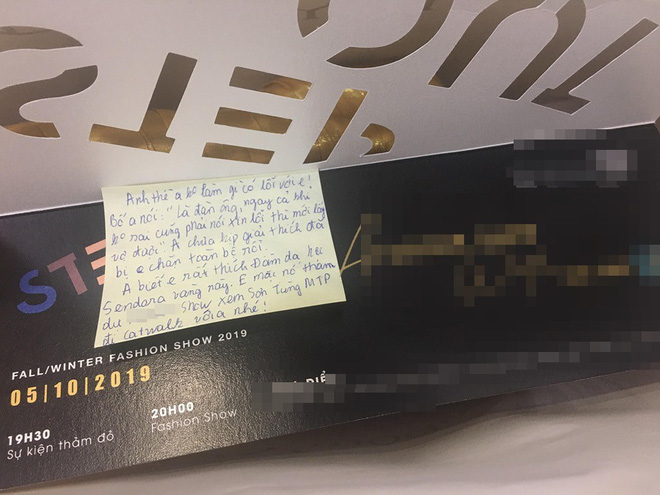 Anh thề a ko làm gì có lỗi với e!
Bố a nói: "là đàn ông, ngay cả khi
ko sai cũng phải nói xin lỗi thì mới lấy
vợ được". A chưa kịp giải thích đã
bị e chặn toàn bộ rồi.
A biết e rất thích Đầm dạ hội
Sendara vàng này. E mặc nó tham
dự show xem Sơn Tùng MTP
đi catwalk với a nhé!
STE
FALL/WINTER FASHION SHOW 2019
05|10|2019
19H30
Sự kiện thảm đỏ
20H00
Fashion Show